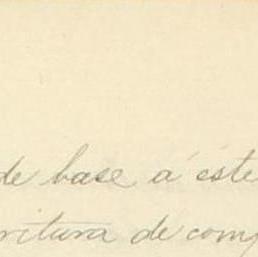 de base a éste
ritura de comp